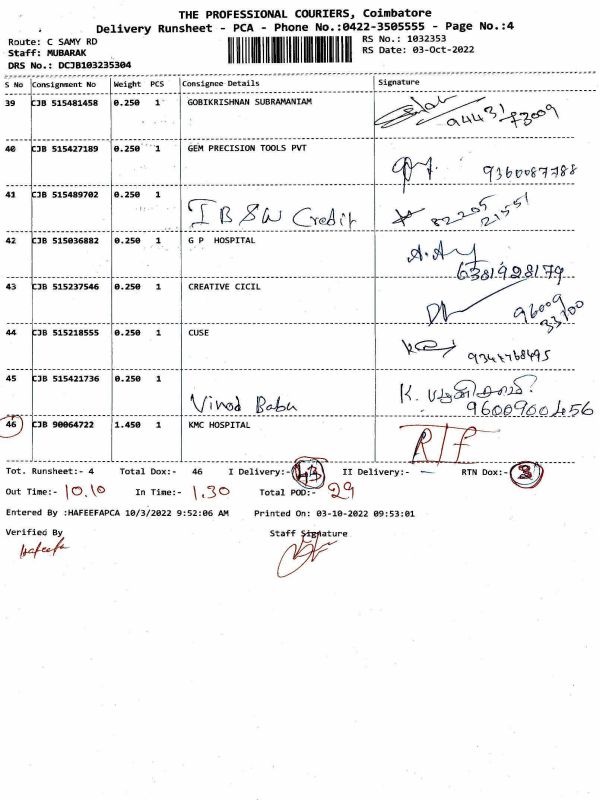 THE PROFESSIONAL COURIERS, Coimbatore
Delivery Runsheet - PCA - Phone No.:0422-3505555 - Page No.:4
Route: C SAMY RD
RS No.: 1032353
Staff: MUBARAK
RS Date: 03-Oct-2022
DRS No.: DCJB103235304
S No Consignment No Weight PCS Consignee Details Signature
39 CJB 515481458 0.250 1 GOBIKRISHNAN SUBRAMANIAM
94431 73009
40 CJB 515427189 0.250 1 GEM PRECISION TOOLS PVT
9360087788
41 CJB 515489702 0.250 1 Credit
82205
21551
42 CJB 515036882 0.250 1 G P HOSPITAL
6381928179
43 CJB 515237546 0.250 1 CREATIVE CICIL
96009
33700
44 CJB 515218555 0.250 1 CUSE
9344768495
45 CJB 515421736 0.250 1 Vinod Babu K.
9600900456
46 CJB 90064722 1.450 1 KMC HOSPITAL RTF
Tot. Runsheet:- 4 Total Dox:- 46 I Delivery:- 43 II Delivery:- — RTN Dox:- 3
Out Time:- 10.10 In Time:- 1.30 Total POD:- 29
Entered By :HAFEEFAPCA 10/3/2022 9:52:06 AM Printed On: 03-10-2022 09:53:01
Verified By Staff Signature
Hafeefa